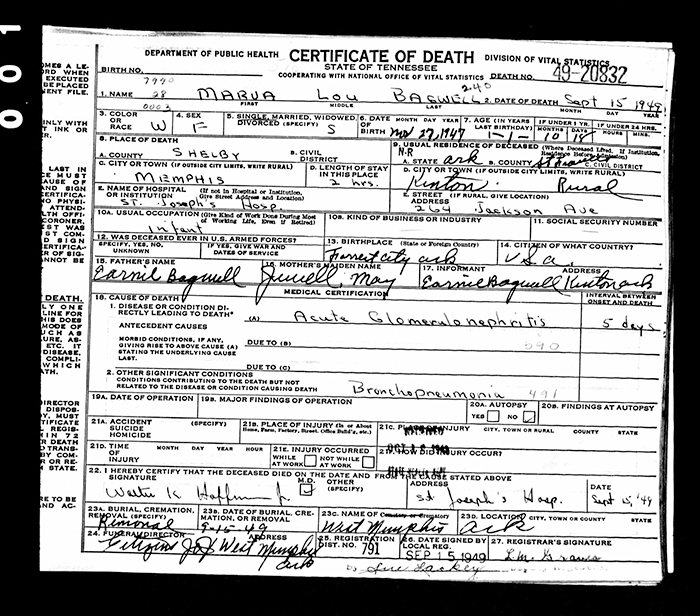 001
DEPARTMENT OF PUBLIC HEALTH CERTIFICATE OF DEATH DIVISION OF VITAL STATISTICS
STATE OF TENNESSEE
BIRTH NO. COOPERATING WITH NATIONAL OFFICE OF VITAL STATISTICS DEATH NO. 49-20832
1. NAME Marva Lou Bagwell 2. DATE OF DEATH Sept 15 1949
FIRST MIDDLE LAST MONTH DAY YEAR
3. COLOR OR RACE W 4. SEX F 5. SINGLE, MARRIED, WIDOWED, DIVORCED (SPECIFY) S 6. DATE OF BIRTH MONTH DAY YEAR Nov 27, 1947 7. AGE (IN YEARS LAST BIRTHDAY) 1 IF UNDER 1 YR. MONTHS DAYS 10 18 IF UNDER 24 HRS. HOURS MINS.
8. PLACE OF DEATH
A. COUNTY SHELBY B. CIVIL DISTRICT
9. USUAL RESIDENCE OF DECEASED (Where Deceased Lived. If Residence Before Admission)
N-R A. STATE Ark B. COUNTY C. CIVIL DISTRICT
C. CITY OR TOWN (IF OUTSIDE CITY LIMITS, WRITE RURAL) MEMPHIS D. LENGTH OF STAY IN THIS PLACE 2 hrs.
D. CITY OR TOWN (IF OUTSIDE CITY LIMITS, WRITE RURAL) Rural
E. NAME OF HOSPITAL OR INSTITUTION (If not in Hospital or Institution, Give Street Address and Location) St. Joseph's Hosp.
E. STREET ADDRESS (IF RURAL, GIVE LOCATION) Jackson Ave
10A. USUAL OCCUPATION (Give Kind of Work Done During Most of Working Life, Even if Retired) Infant 10B. KIND OF BUSINESS OR INDUSTRY 11. SOCIAL SECURITY NUMBER
12. WAS DECEASED EVER IN U.S. ARMED FORCES? SPECIFY, YES, NO, UNKNOWN IF YES, GIVE WAR AND DATES OF SERVICE 13. BIRTHPLACE (State or Foreign Country) Forrest City Ark 14. CITIZEN OF WHAT COUNTRY? U.S.A.
15. FATHER'S NAME Earnie Bagwell 16. MOTHER'S MAIDEN NAME Jewell May 17. INFORMANT ADDRESS Earnie Bagwell Ark
MEDICAL CERTIFICATION
18. CAUSE OF DEATH INTERVAL BETWEEN ONSET AND DEATH
1. DISEASE OR CONDITION DIRECTLY LEADING TO DEATH* (A) Acute Glomerulonephritis 5 days
ANTECEDENT CAUSES
MORBID CONDITIONS, IF ANY, GIVING RISE TO ABOVE CAUSE (A) STATING THE UNDERLYING CAUSE LAST. DUE TO (B) 590
DUE TO (C)
2. OTHER SIGNIFICANT CONDITIONS
CONDITIONS CONTRIBUTING TO THE DEATH BUT NOT RELATED TO THE DISEASE OR CONDITION CAUSING DEATH Bronchopneumonia 491
19A. DATE OF OPERATION 19B. MAJOR FINDINGS OF OPERATION 20A. AUTOPSY YES NO 20B. FINDINGS AT AUTOPSY
21A. ACCIDENT SUICIDE HOMICIDE (SPECIFY) 21B. PLACE OF INJURY (In or About Home, Farm, Factory, Street, Office Build'g, etc.) 21C. PLACE OF INJURY CITY, TOWN OR RURAL COUNTY STATE
21D. TIME OF INJURY MONTH DAY YEAR HOUR 21E. INJURY OCCURRED WHILE AT WORK NOT WHILE AT WORK HOW DID INJURY OCCUR?
22. I HEREBY CERTIFY THAT THE DECEASED DIED ON THE DATE AND FROM THE CAUSE STATED ABOVE
SIGNATURE M.D. OTHER (SPECIFY) ADDRESS DATE
Walter K. Hoffman Jr. St Joseph's Hosp. Sept 15, '49
23A. BURIAL, CREMATION, REMOVAL (SPECIFY) Removal 23B. DATE OF BURIAL, CREMATION, OR REMOVAL 9-15-49 23C. NAME OF Cemetery or Crematory West Memphis 23D. LOCATION CITY, TOWN OR COUNTY STATE Ark
24. FUNERAL DIRECTOR ADDRESS Citizens West Memphis Ark 25. REGISTRATION DIST. NO. 791 26. DATE SIGNED BY LOCAL REG. SEP 15 1949 27. REGISTRAR'S SIGNATURE L.M. Graves
Lackey